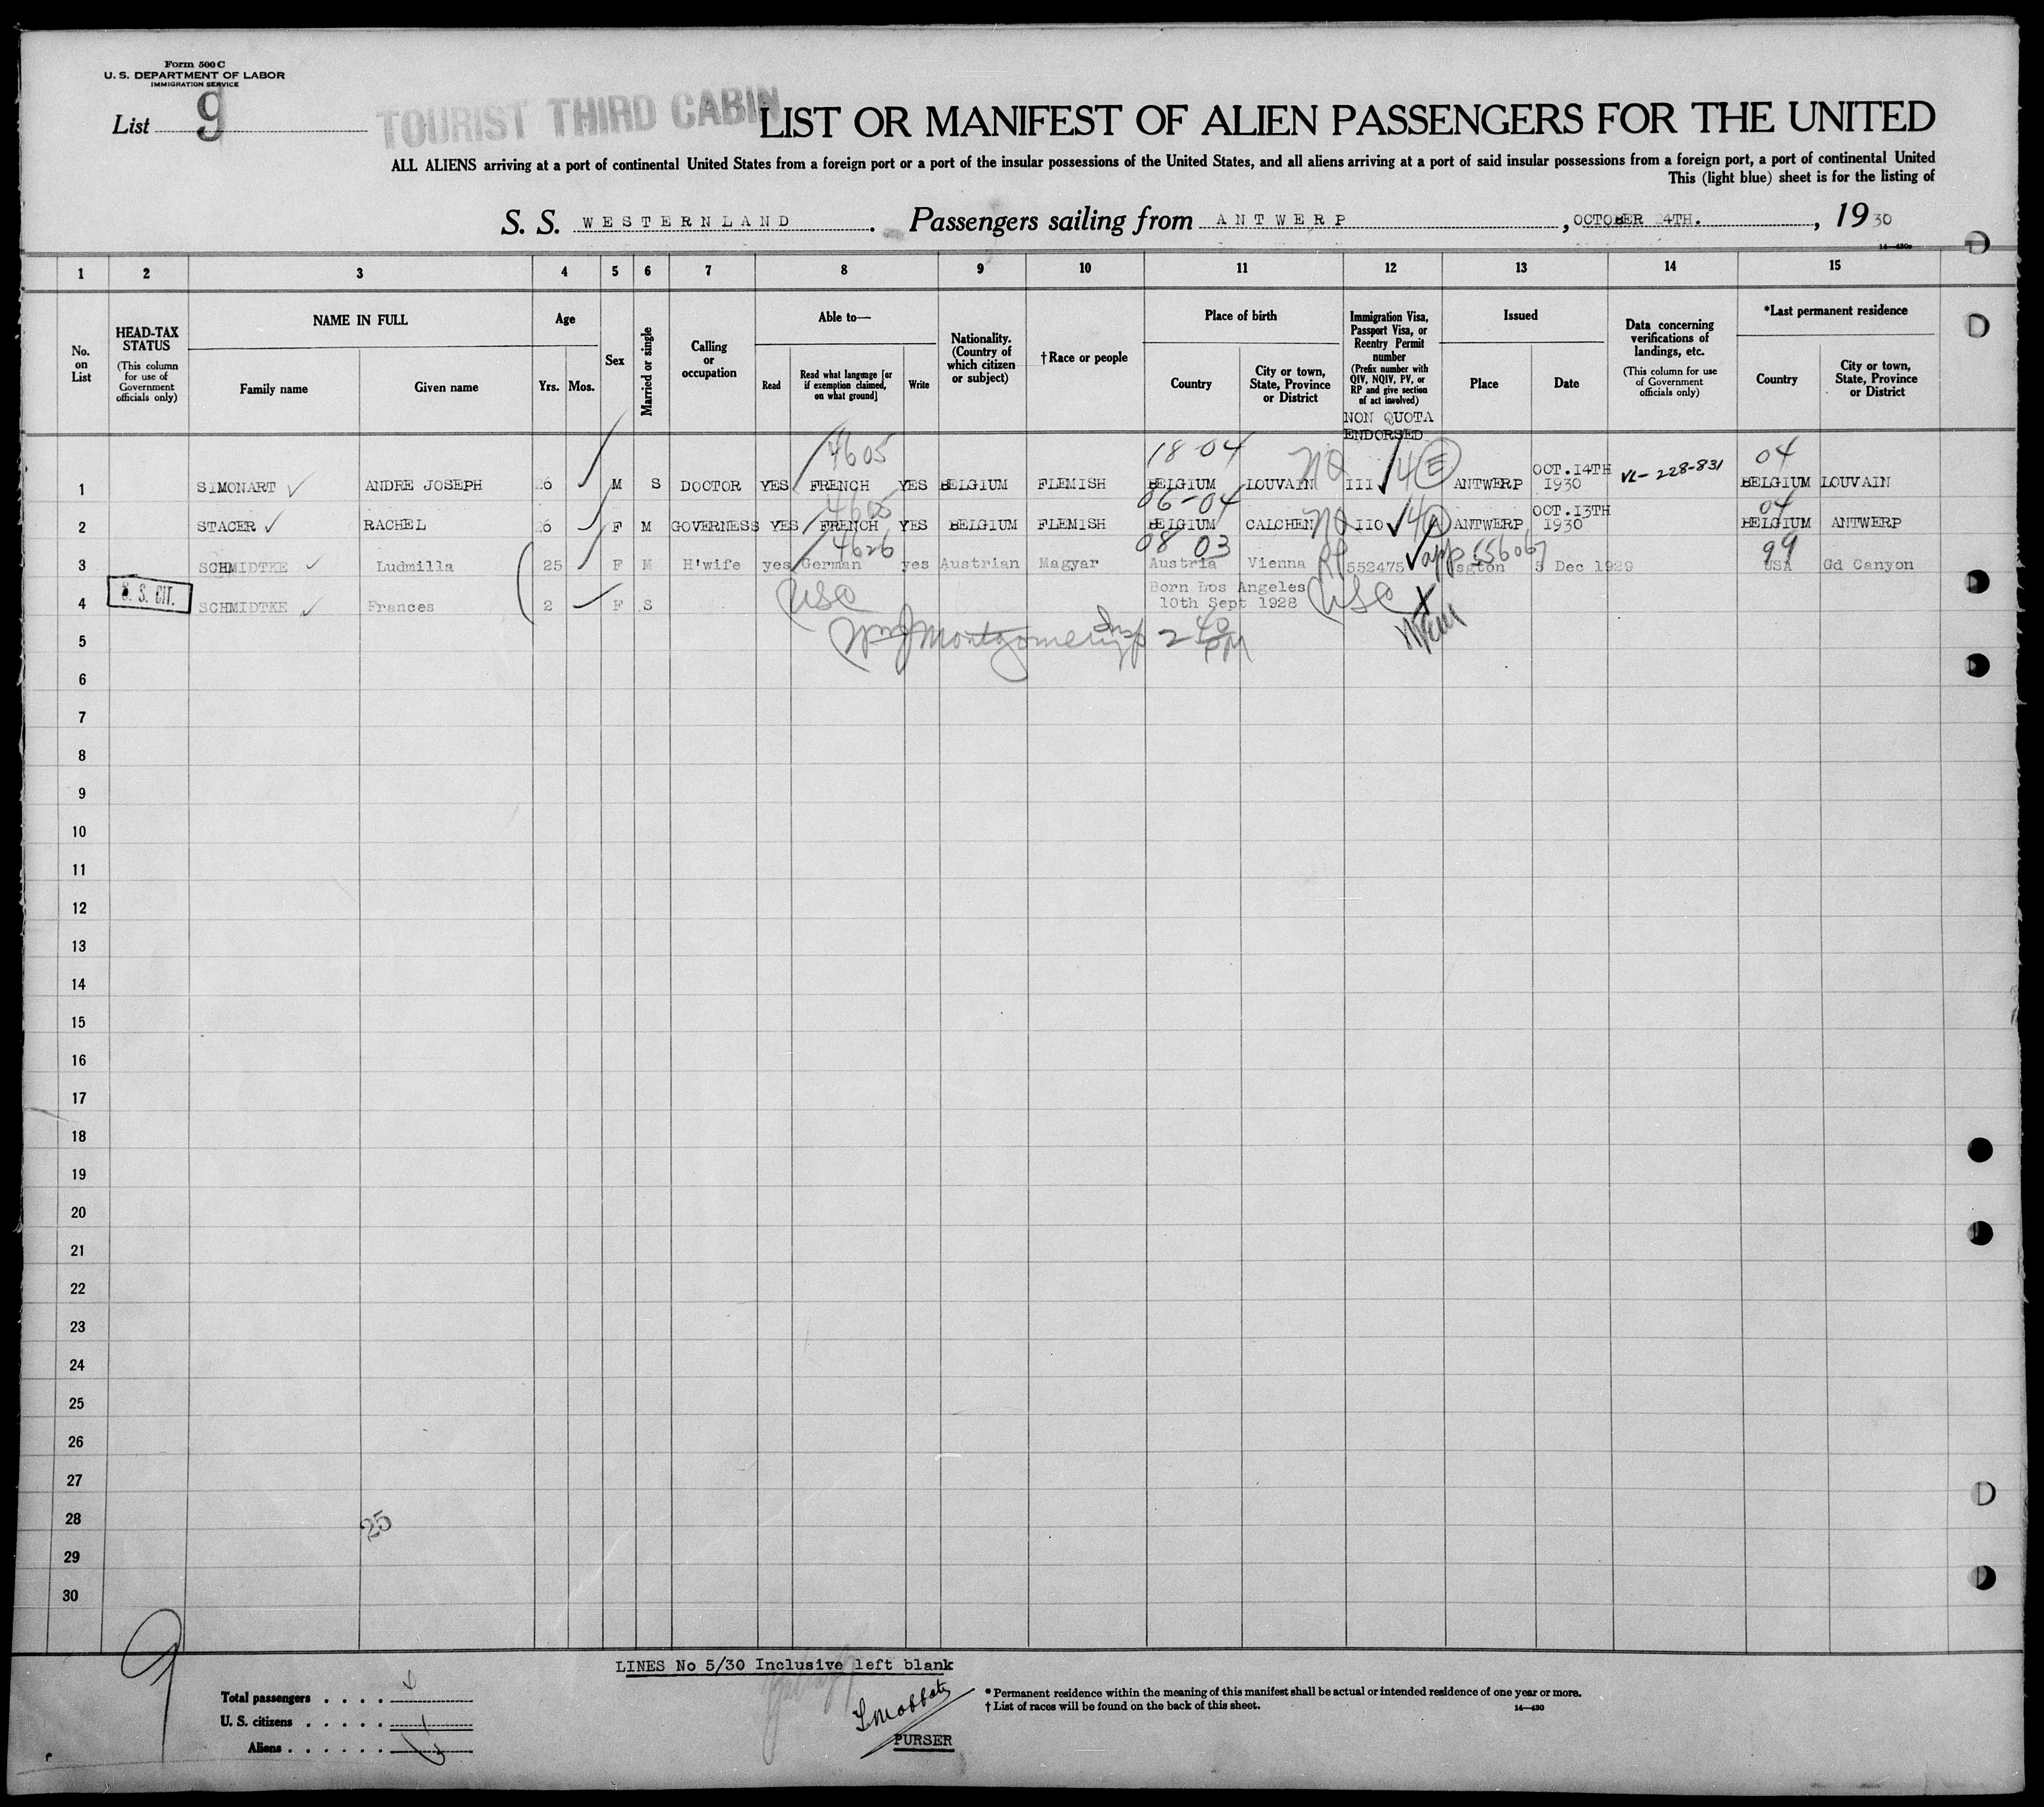 Form 500 C
U. S. DEPARTMENT OF LABOR
IMMIGRATION SERVICE
List 9
TOURIST THIRD CABIN
LIST OR MANIFEST OF ALIEN PASSENGERS FOR THE UNITED
ALL ALIENS arriving at a port of continental United States from a foreign port or a port of the insular possessions of the United States, and all aliens arriving at a port of said insular possessions from a foreign port, a port of continental United
This (light blue) sheet is for the listing of
S. S. WESTERNLAND. Passengers sailing from ANTWERP, OCTOBER 24TH., 1930
14—430a
1 2 3 4 5 6 7 8 9 10 11 12 13 14 15
No. on List
HEAD-TAX STATUS (This column for use of Government officials only)
NAME IN FULL
Family name
Given name
Age
Yrs. Mos.
Sex
Married or single
Calling or occupation
Able to—
Read
Read what language [or if exemption claimed, on what ground]
Write
Nationality. (Country of which citizen or subject)
†Race or people
Place of birth
Country
City or town, State, Province or District
Immigration Visa, Passport Visa, or Reentry Permit number (Prefix number with QIV, NQIV, PV, or RP and give section of act involved)
NON QUOTA
ENDORSED
Issued
Place
Date
Data concerning verifications of landings, etc. (This column for use of Government officials only)
*Last permanent residence
Country
City or town, State, Province or District
4605 18-04 04
1 SIMONART ANDRE JOSEPH 26 M S DOCTOR YES FRENCH YES BELGIUM FLEMISH BELGIUM LOUVAIN NQ III 4 E ANTWERP OCT.14TH 1930 VL-228-831 BELGIUM LOUVAIN
4605 06-04 04
2 STACER RACHEL 26 F M GOVERNESS YES FRENCH YES BELGIUM FLEMISH BELGIUM CALCHEN NQ 110 4 ANTWERP OCT.13TH 1930 BELGIUM ANTWERP
4626 08 03 99
3 SCHMIDTKE Ludmilla 25 F M H'wife yes German yes Austrian Magyar Austria Vienna RP 552475 app 556067 sgton 5 Dec 1929 USA Gd Canyon
U. S. CIT.
4 SCHMIDTKE Frances 2 F S USC Born Los Angeles 10th Sept 1928 USC
5 Wm J Montgomery Insp 2 40 PM
6
7
8
9
10
11
12
13
14
15
16
17
18
19
20
21
22
23
24
25
26
27
28
25
29
30
9
LINES No 5/30 Inclusive left blank
Total passengers . . . . 4
U. S. citizens . . . . . 1
Aliens . . . . . . 3
PURSER
* Permanent residence within the meaning of this manifest shall be actual or intended residence of one year or more.
† List of races will be found on the back of this sheet.
14—430